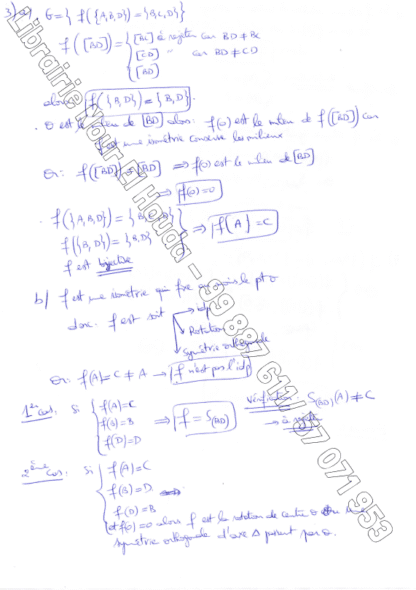 3) a) G = f({A,B,D}) = {B,C,D}
f([BD]) = { [BC] à rejeter car BD ≠ BC
[CD] " car BD ≠ CD
[BD]
alors f({B,D}) = {B,D}.
. O est le milieu de [BD] alors f(O) est le milieu de f([BD]) car
f est une isométrie conserve les milieux
Or: f([BD]) = [BD] ⇒ f(O) est le milieu de [BD]
⇒ f(O) = O
. f({A,B,D}) = {B,C,D}
f({B,D}) = {B,D}
f est bijective
} ⇒ f(A) = C
b) f est une isométrie qui fixe le pt O
donc f est soit → idp
→ Rotation
→ Symétrie orthogonale
Or: f(A) = C ≠ A → f n'est pas l'idp
1er cas. Si { f(A)=C
f(B)=B
f(D)=D
⇒ f = S(BD)
Vérification: S(BD)(A) ≠ C
→ à rejeter
2ème cas. Si { f(A)=C
f(B)=D
f(D)=B
et f(O)=O alors f est la rotation de centre O
symétrie orthogonale d'axe Δ passant par O.
Librairie Nour El Houda - 99 897 611/ 27 071 953